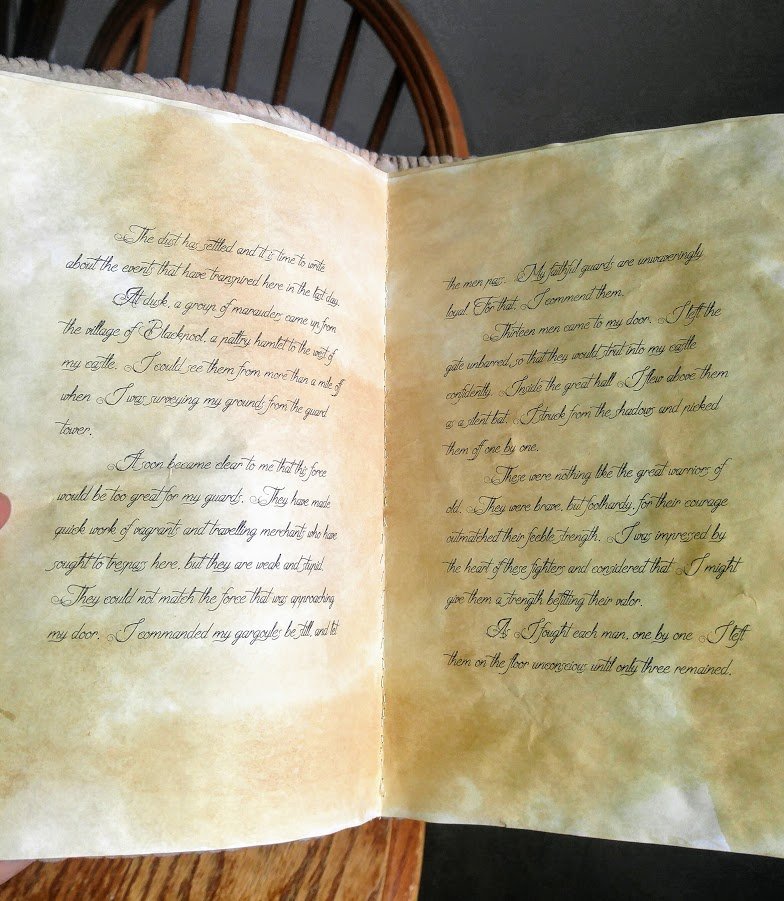 The dust has settled and it is time to write
about the events that have transpired here in the last day.
At dusk, a group of marauders came up from
the village of Blackpool, a paltry hamlet to the west of
my castle. I could see them from more than a mile off
when I was surveying my grounds from the guard
tower.
It soon became clear to me that this force
would be too great for my guards. They have made
quick work of vagrants and travelling merchants who have
sought to trespass here, but they are weak and stupid.
They could not match the force that was approaching
my door. I commanded my gargoyles be still, and let
the men pass. My faithful guards are unwaveringly
loyal. For that, I commend them.
Thirteen men came to my door. I left the
gate unbarred, so that they would strut into my castle
confidently. Inside the great hall I flew above them
as a silent bat. I struck from the shadows and picked
them off one by one.
These were nothing like the great warriors of
old. They were brave, but foolhardy, for their courage
outmatched their feeble strength. I was impressed by
the heart of these fighters and considered that I might
give them a strength befitting their valor.
As I fought each man, one by one I left
them on the floor unconscious until only three remained.